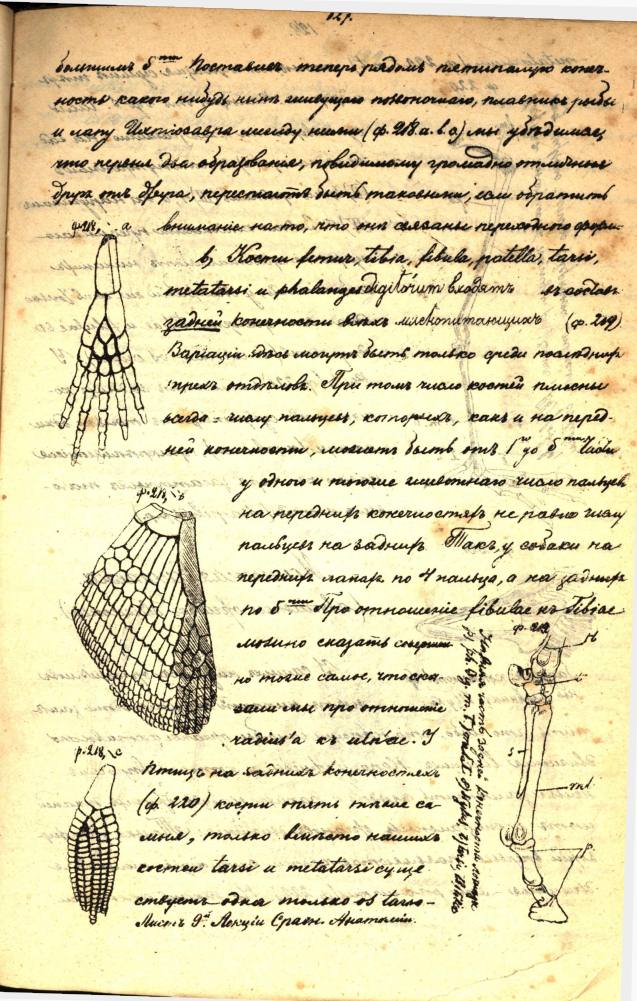 127.
большимъ 5ти Поставивъ теперь рядомъ пятипалую конеч-
ность какого нибудь нынѣ живущаго позвоночнаго, плавникъ рыбы
и лапу Ихтіозавра между ними (ф. 218. а. в с) мы убѣдимся,
что первыя два образованія, повидимому громадно отличныя
другъ отъ друга, перестаютъ быть таковыми, если обратить
вниманіе на то, что онѣ связаны переходною форм-
ф. 218, a
b) Кости femur, tibia, fibula, patella, tarsi,
metatarsi и phalanges digitórum входятъ въ составъ
задней конечности всѣхъ млекопитающихъ (ф. 219)
Варіаціи здѣсь могутъ быть только среди послѣднихъ
трехъ отдѣловъ. При томъ число костей плюсны
всегда = числу пальцевъ, которыхъ, какъ и на перед-
ней конечности, можетъ быть отъ 1го до 5ти
ф. 218, b
у одного и того же животнаго число пальцевъ
на переднихъ конечностяхъ не равно числу
пальцевъ на заднихъ Такъ, у собаки на
переднихъ лапахъ по 4 пальца, а на заднихъ
по 5ти Про отношеніе fibulae къ tibiae
можно сказать совершен-
но тоже самое, что ска-
зали мы про отношеніе
radius'а къ uln'ае. У
ф. 218, c
птицъ на заднихъ конечностяхъ
(ф. 220) кости опять тѣже са-
мыя, только вмѣсто нашихъ
костей tarsi и metatarsi суще
ствуетъ одна только os tarso-
Листъ 9й Лекціи Сравн. Анатоміи.
ф. 219
s
mt
p.
задней конечности лошади